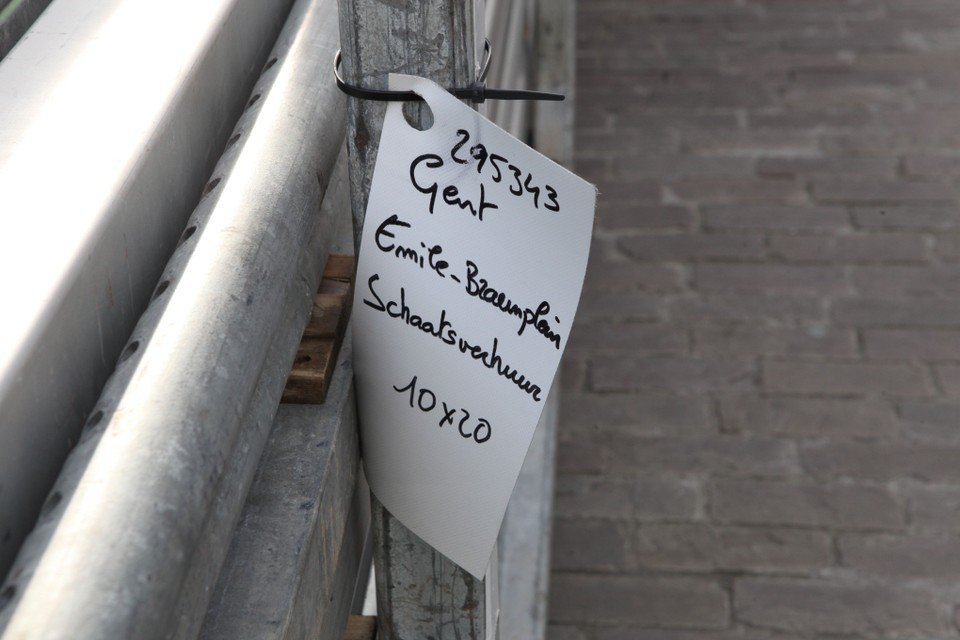 295343
Gent
Emile-Braunplein
Schaatsverhuur
10x20